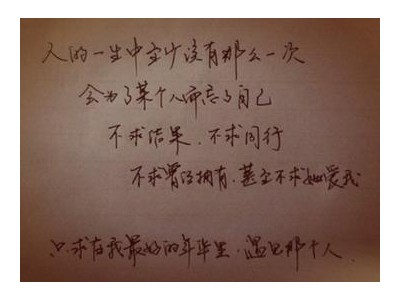 人的一生中至少该有那么一次
会为了某个人而忘了自己
不求结果,不求同行
不求曾经拥有,甚至不求她爱我
只求在我最好的年华里,遇见那个人.